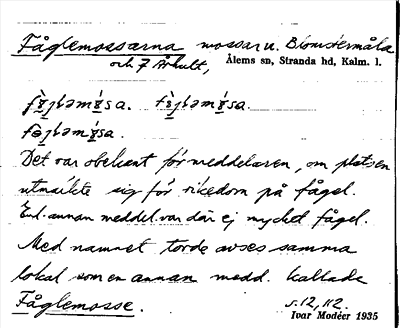 Fåglemossarna mossar u. Blomstermåla
och 7 Århult, Ålems sn, Stranda hd, Kalm. l.
Det var obekant för meddelaren, om platsen
utmärkte sig för rikedom på fågel.
Enl. annan meddel. var där ej mycket fågel.
Med namnet torde avses samma
lokal som en annan medd. kallade
Fåglemosse. s. 12, 112.
Ivar Modéer 1935